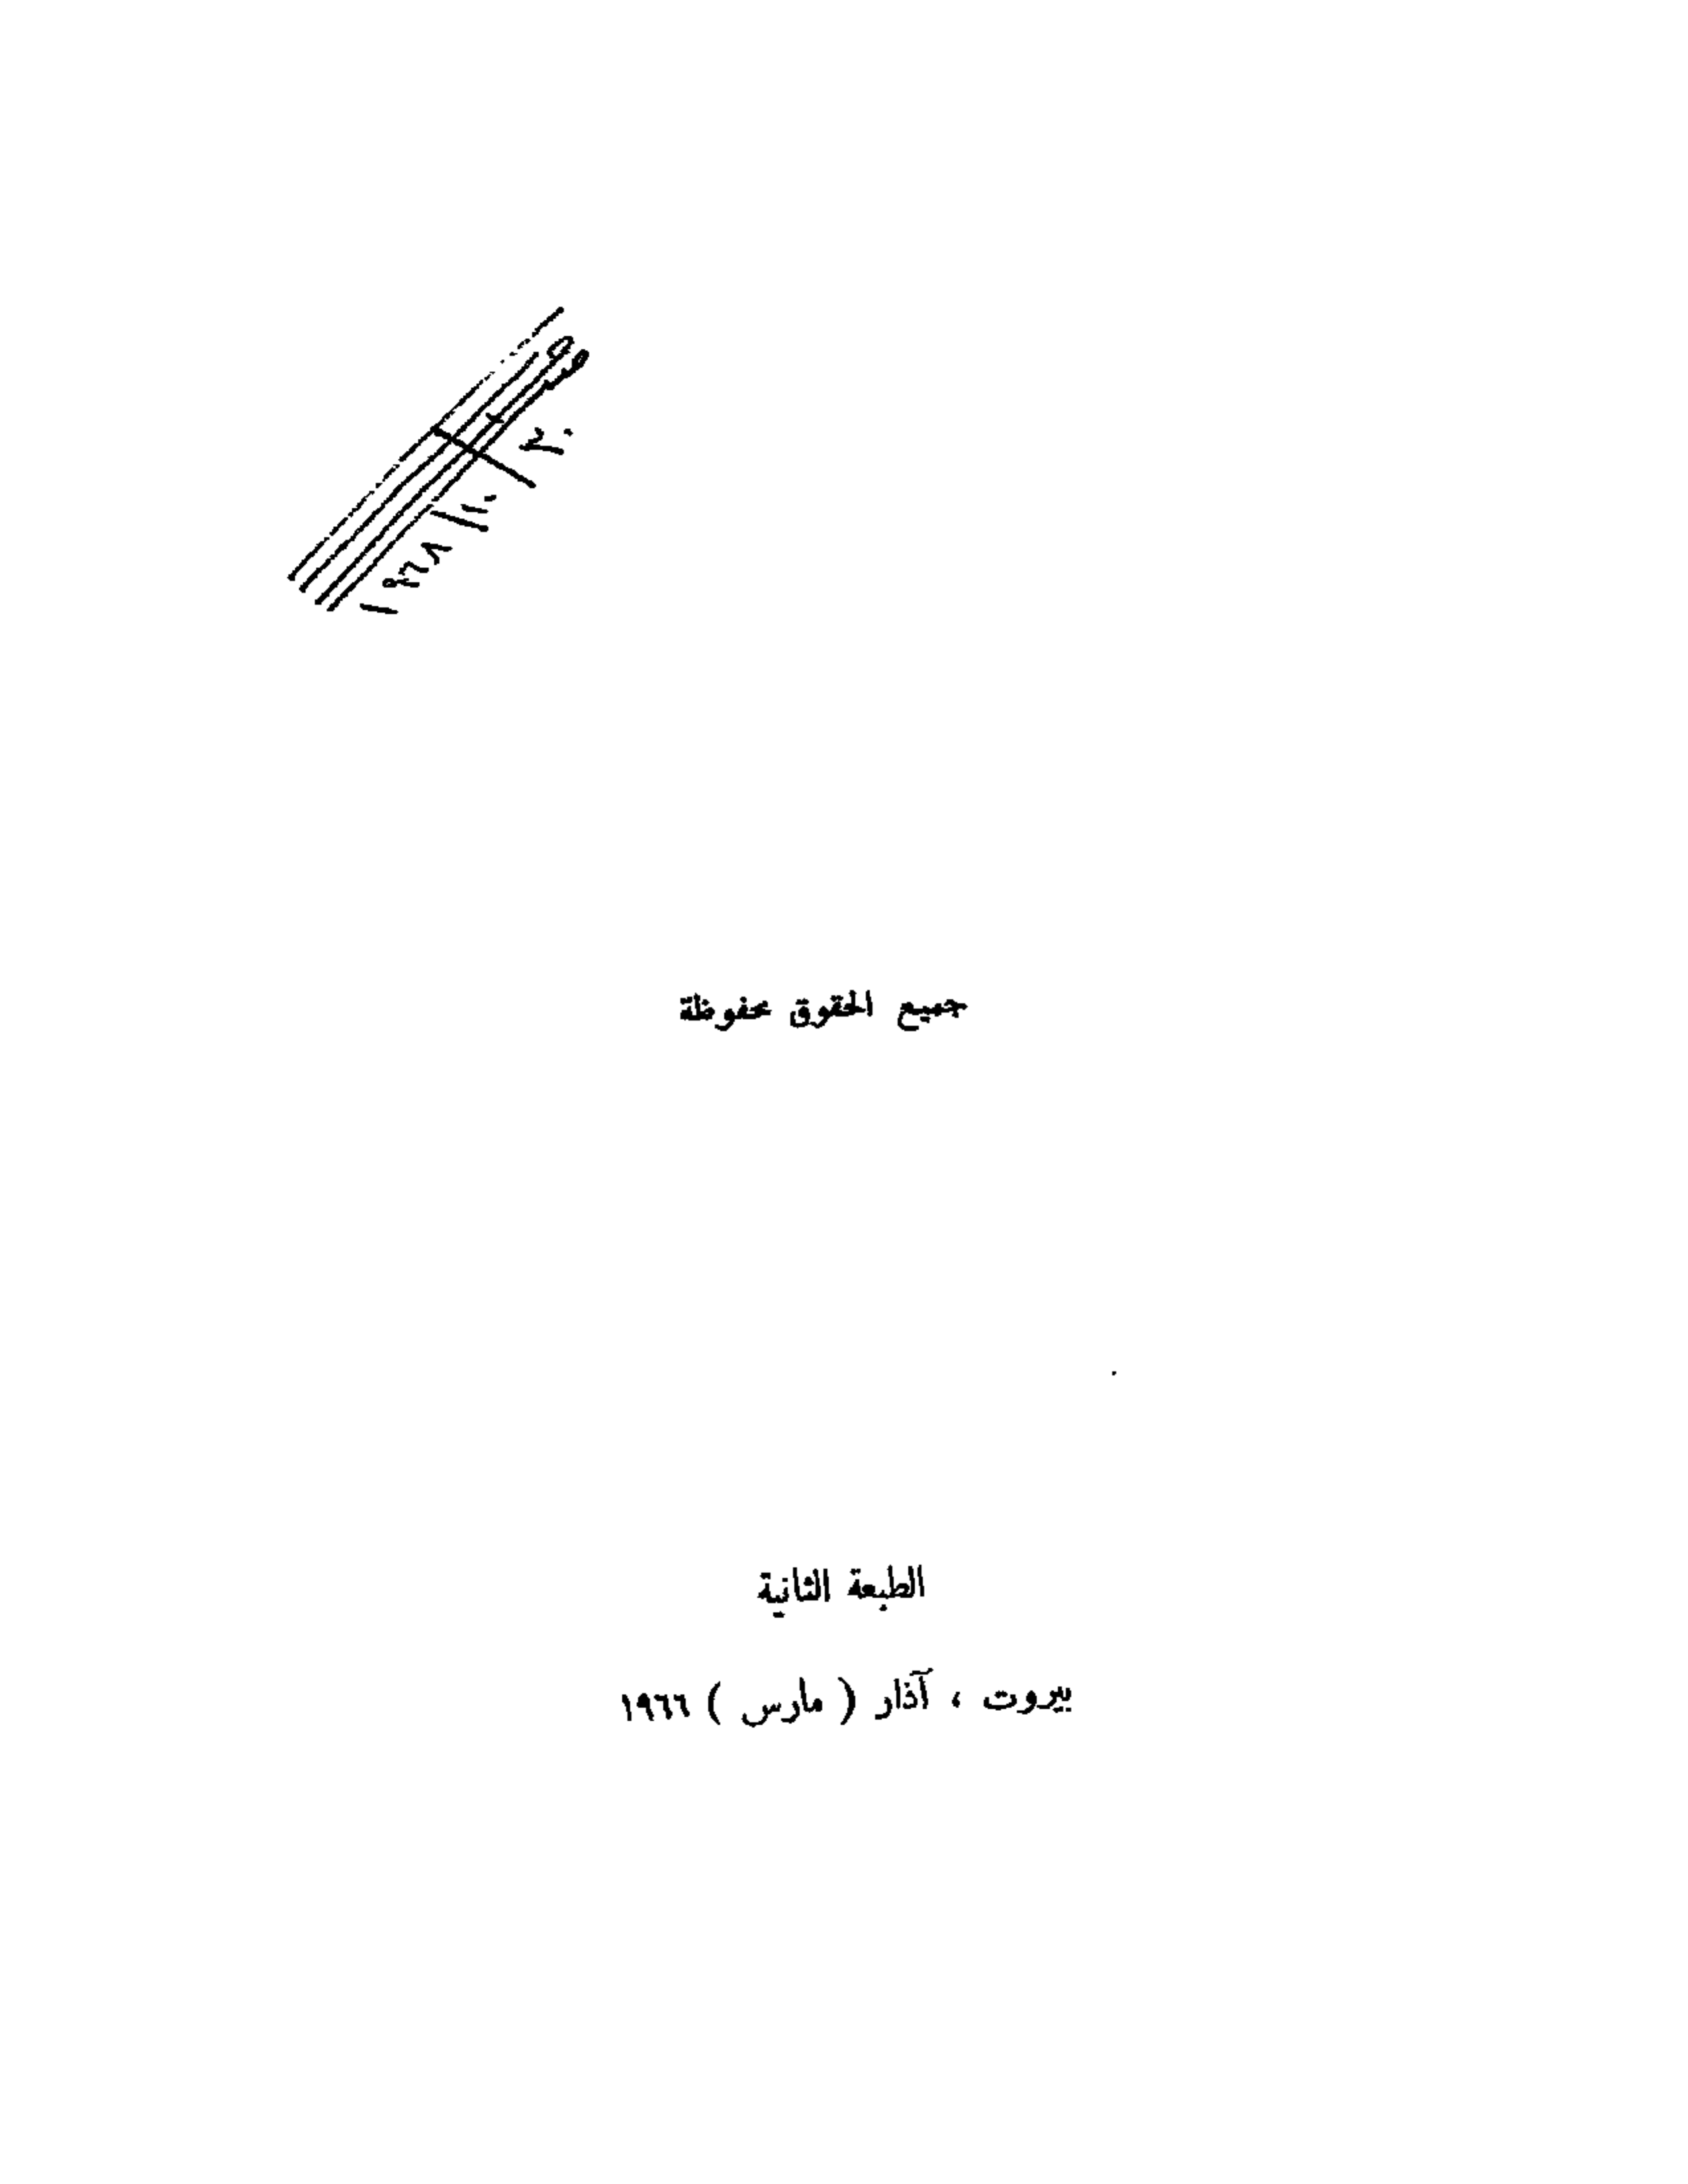 ١٩٦٨/١٠/٢٠
جميع الحقوق محفوظة
الطبعة الثانية
بيروت ، آذار ( مارس ) ١٩٦٦